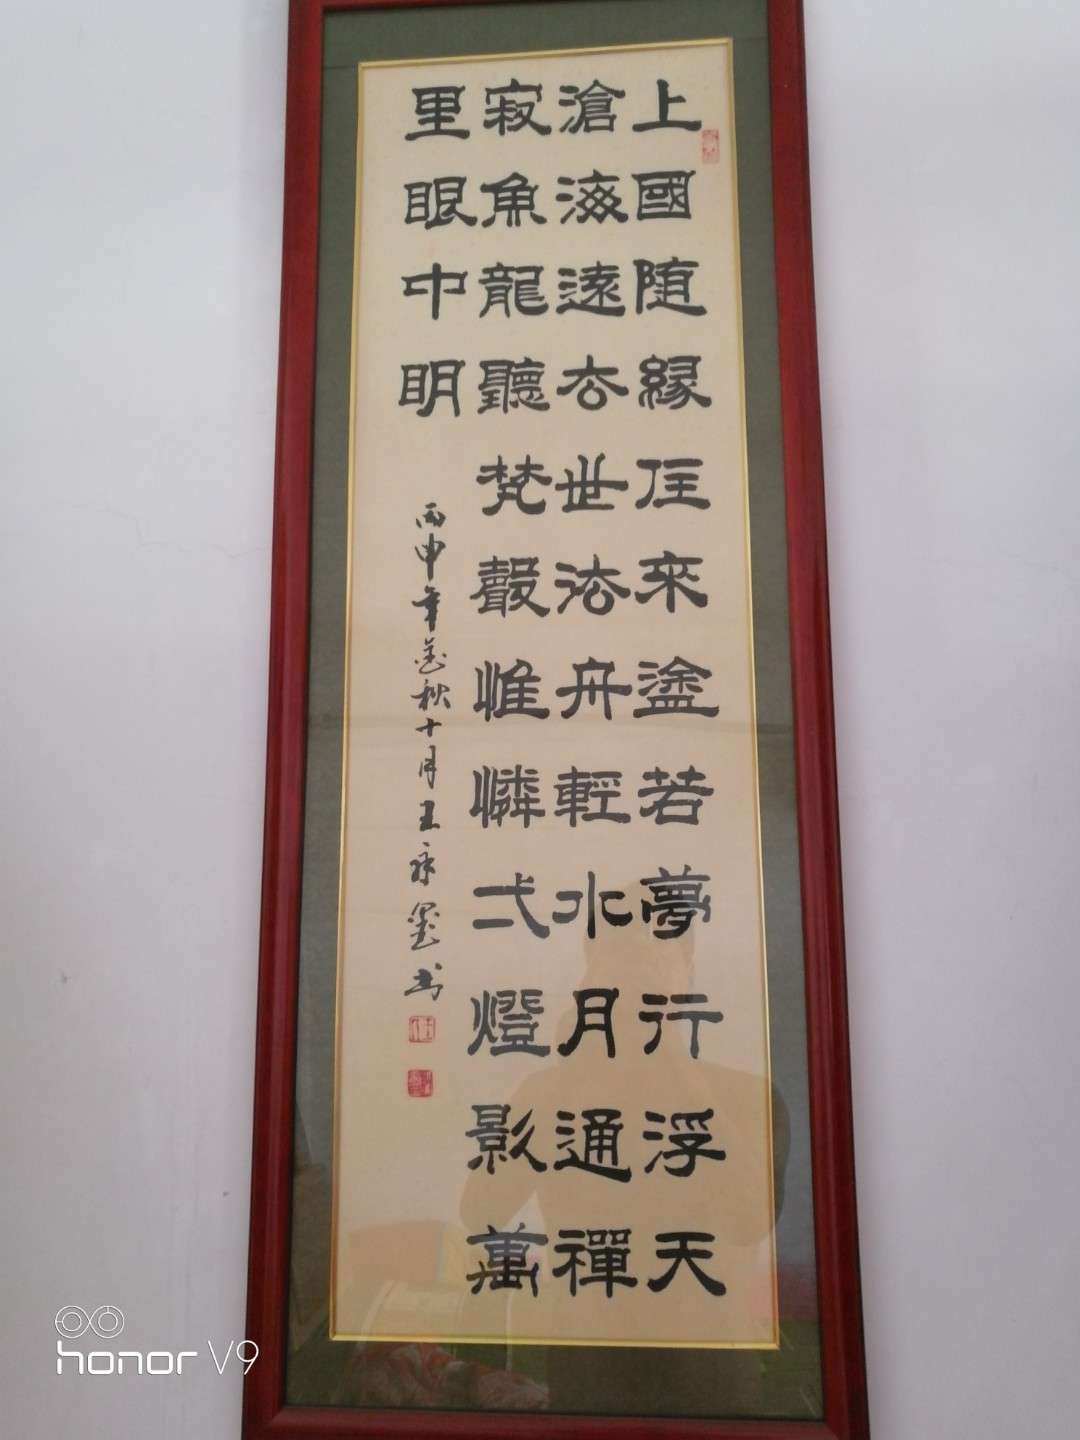 上國随緣住來塗若夢行浮天
滄海遠去世法舟輕水月通禪
寂魚龍聽梵聲惟憐弌燈影萬
里眼中明
丙申年金秋十月王墨书
honor V9